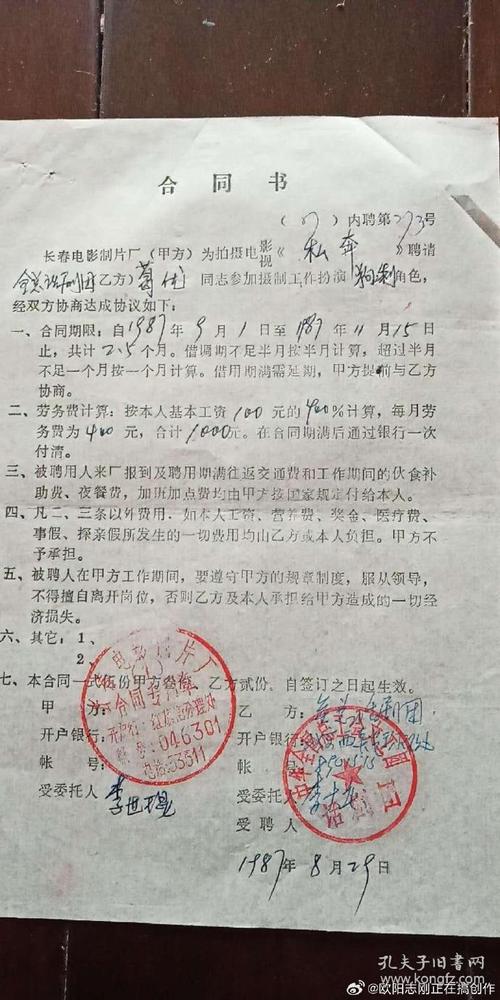 合同书
(87)内聘第273号
长春电影制片厂(甲方)为拍摄电影视《私奔》聘请
全总话剧团乙方)葛优同志参加摄制工作扮演狗剩角色,
经双方协商达成协议如下:
一、合同期限:自1987年9月1日至1987年11月15日
止,共计2.5个月。借调期不足半月按半月计算,超过半月
不足一个月按一个月计算。借用期满需延期,甲方提前与乙方
协商。
二、劳务费计算:按本人基本工资100元的400%计算,每月劳
务费为400元,合计1000元。在合同期满后通过银行一次
付清。
三、被聘用人来厂报到及聘用期满往返交通费和工作期间的伙食补
助费、夜餐费,加班加点费均由甲方按国家规定付给本人。
四、凡二、三条以外费用.如本人工资、营养费、奖金、医疗费、
事假、探亲假所发生的一切费用均由乙方或本人负担。甲方不
予承担。
五、被聘人在甲方工作期间,要遵守甲方的规章制度,服从领导,
不得擅自离开岗位,否则乙方及本人承担给甲方造成的一切经
济损失。
六、其它:1、
2、
七、本合同一式伍份甲方叁份,乙方贰份。自签订之日起生效。
甲方: 乙方:全总话剧团
开户银行: 开户银行:
帐号: 帐号:
受委托人 李世琨 受委托人
受聘人
电影制片厂
合同专用章
046301
电话:53311
话剧团
1987年8月29日
孔夫子旧书网
kongfz.com
@欧阳志刚正在搞创作